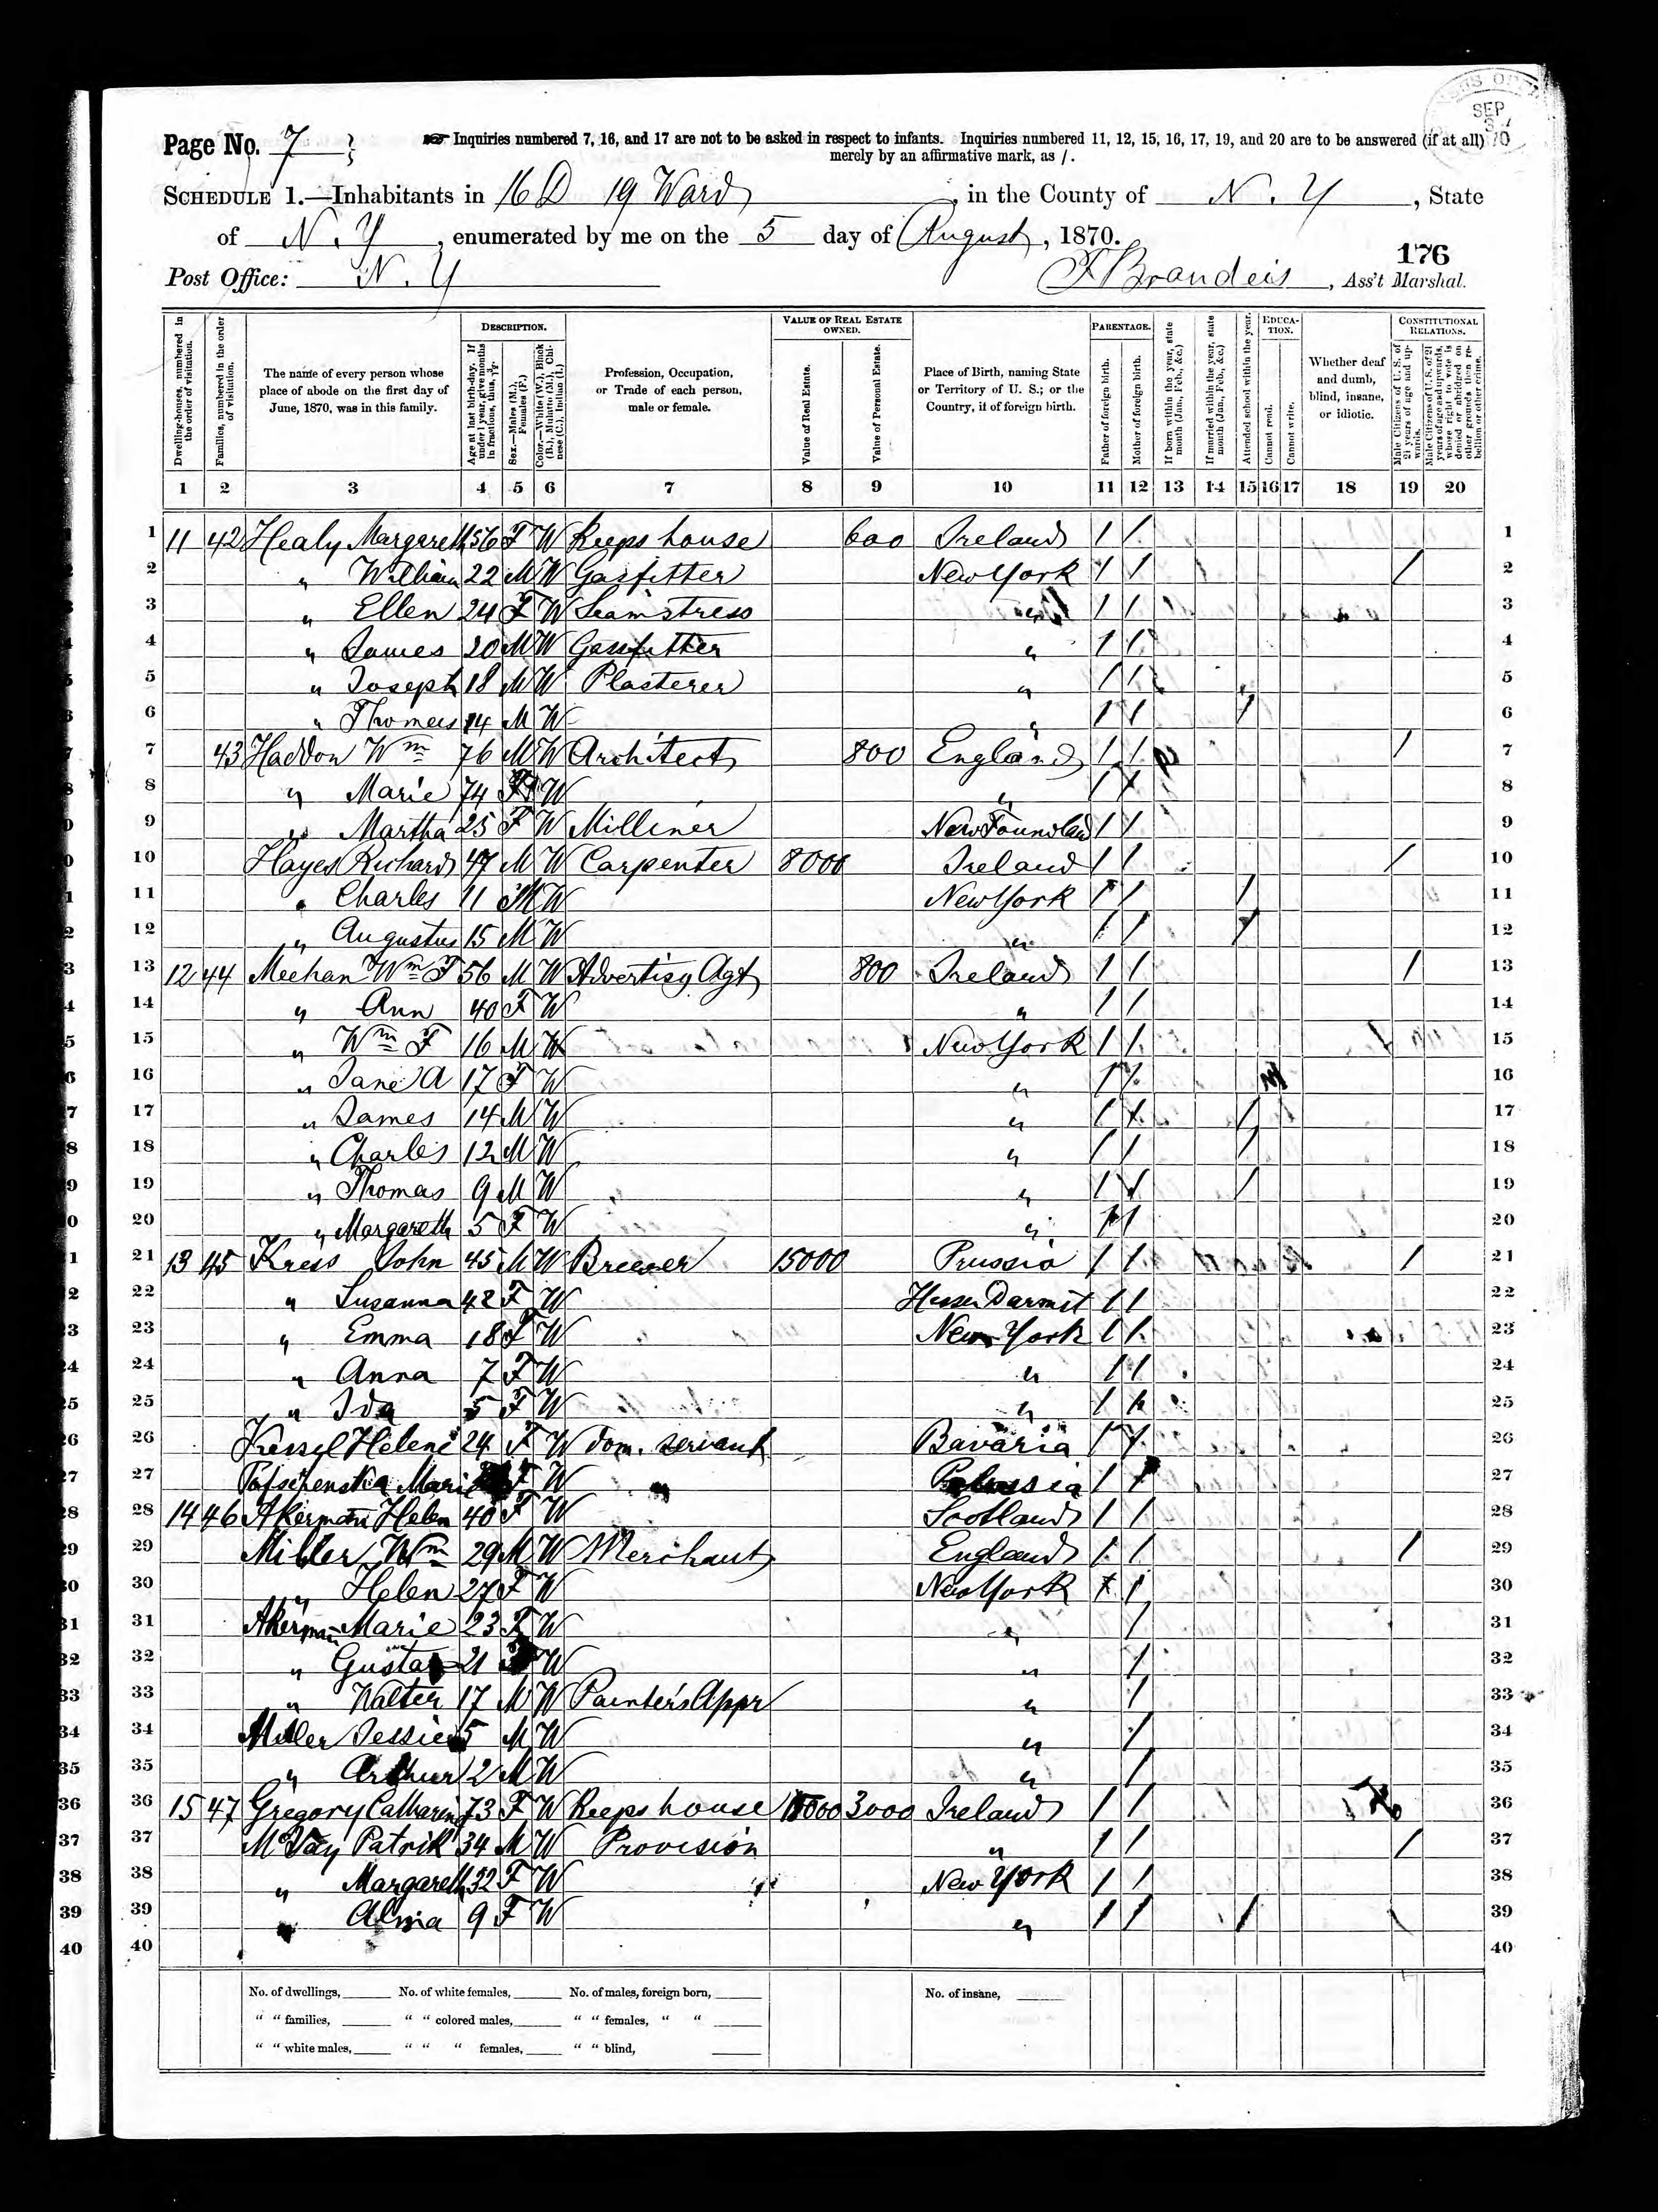 CENSUS OFFICE SEP 70
Page No. 7
☞ Inquiries numbered 7, 16, and 17 are not to be asked in respect to infants. Inquiries numbered 11, 12, 15, 16, 17, 19, and 20 are to be answered (if at all)
merely by an affirmative mark, as /.
SCHEDULE 1.—Inhabitants in 16 D 19 Ward, in the County of N. Y, State
of N. Y, enumerated by me on the 5 day of August, 1870.
176
Post Office: N. Y
F Brandeis, Ass't Marshal.
DESCRIPTION. VALUE OF REAL ESTATE OWNED. PARENTAGE. EDUCATION. CONSTITUTIONAL RELATIONS.
Dwelling-houses, numbered in the order of visitation.
Families, numbered in the order of visitation.
The name of every person whose place of abode on the first day of June, 1870, was in this family.
Age at last birth-day. If under 1 year, give months in fractions, thus, 3/12.
Sex.—Males (M.), Females (F.)
Color.—White (W.), Black (B.), Mulatto (M.), Chinese (C.), Indian (I.)
Profession, Occupation, or Trade of each person, male or female.
Value of Real Estate.
Value of Personal Estate.
Place of Birth, naming State or Territory of U. S.; or the Country, if of foreign birth.
Father of foreign birth.
Mother of foreign birth.
If born within the year, state month (Jan., Feb., &c.)
If married within the year, state month (Jan., Feb., &c.)
Attended school within the year.
Cannot read.
Cannot write.
Whether deaf and dumb, blind, insane, or idiotic.
Male Citizens of U. S. of 21 years of age and upwards.
Male Citizens of U. S. of 21 years of age and upwards, whose right to vote is denied or abridged on other grounds than rebellion or other crime.
1 2 3 4 5 6 7 8 9 10 11 12 13 14 15 16 17 18 19 20
1 11 42 Healy Margareth 56 F W Keeps house 600 Ireland / / 1
2 " William 22 M W Gasfitter New York / / / 2
3 " Ellen 24 F W Seamstress " / / 3
4 " James 20 M W Gasfitter " / / 4
5 " Joseph 18 M W Plasterer " / / 5
6 " Thomas 14 M W " / / / 6
7 43 Haddon Wm 76 M W Architect 800 England / / / 7
8 " Marie 74 F W " / / 8
9 " Martha 25 F W Milliner New Foundland / / 9
10 Hayes Richard 47 M W Carpenter 8000 Ireland / / / 10
11 " Charles 11 M W New York / / / 11
12 " Augustus 15 M W " / / / 12
13 12 44 Meehan Wm F 56 M W Advertisg Agt 800 Ireland / / / 13
14 " Ann 40 F W " / / 14
15 " Wm F 16 M W New York / / 15
16 " Jane A 17 F W " / / 16
17 " James 14 M W " / / / 17
18 " Charles 12 M W " / / / 18
19 " Thomas 9 M W " / / / 19
20 " Margareth 5 F W " / / 20
21 13 45 Kress John 45 M W Brewer 15000 Prussia / / / 21
22 " Susanna 42 F W Hessen Darmst / / 22
23 " Emma 18 F W New York / / 23
24 " Anna 7 F W " / / 24
25 " Ida 5 F W " / / 25
26 Kessel Helene 24 F W dom. servant Bavaria / / 26
27 Mari F W " / / 27
28 14 46 Akerman Helen 40 F W Scotland / / 28
29 Miller Wm 29 M W Merchant England / / / 29
30 " Helen 27 F W New York / / 30
31 Akerman Marie 23 F W " / 31
32 " Gusta 21 W " / 32
33 " Walter 17 M W Painters Appr " / 33
34 Miller Jessie 5 M W " / 34
35 " Arthur 2 M W " / 35
36 15 47 Gregory Catharine 73 F W Keeps house 3000 Ireland / / 36
37 McVay Patrik 34 M W Provision " / / / 37
38 " Margareth 32 F W New York / / 38
39 " Alma 9 F W " / / / 39
40 40
No. of dwellings, No. of white females, No. of males, foreign born, No. of insane,
" " families, " " colored males, " " females, " "
" " white males, " " " females, " " blind,